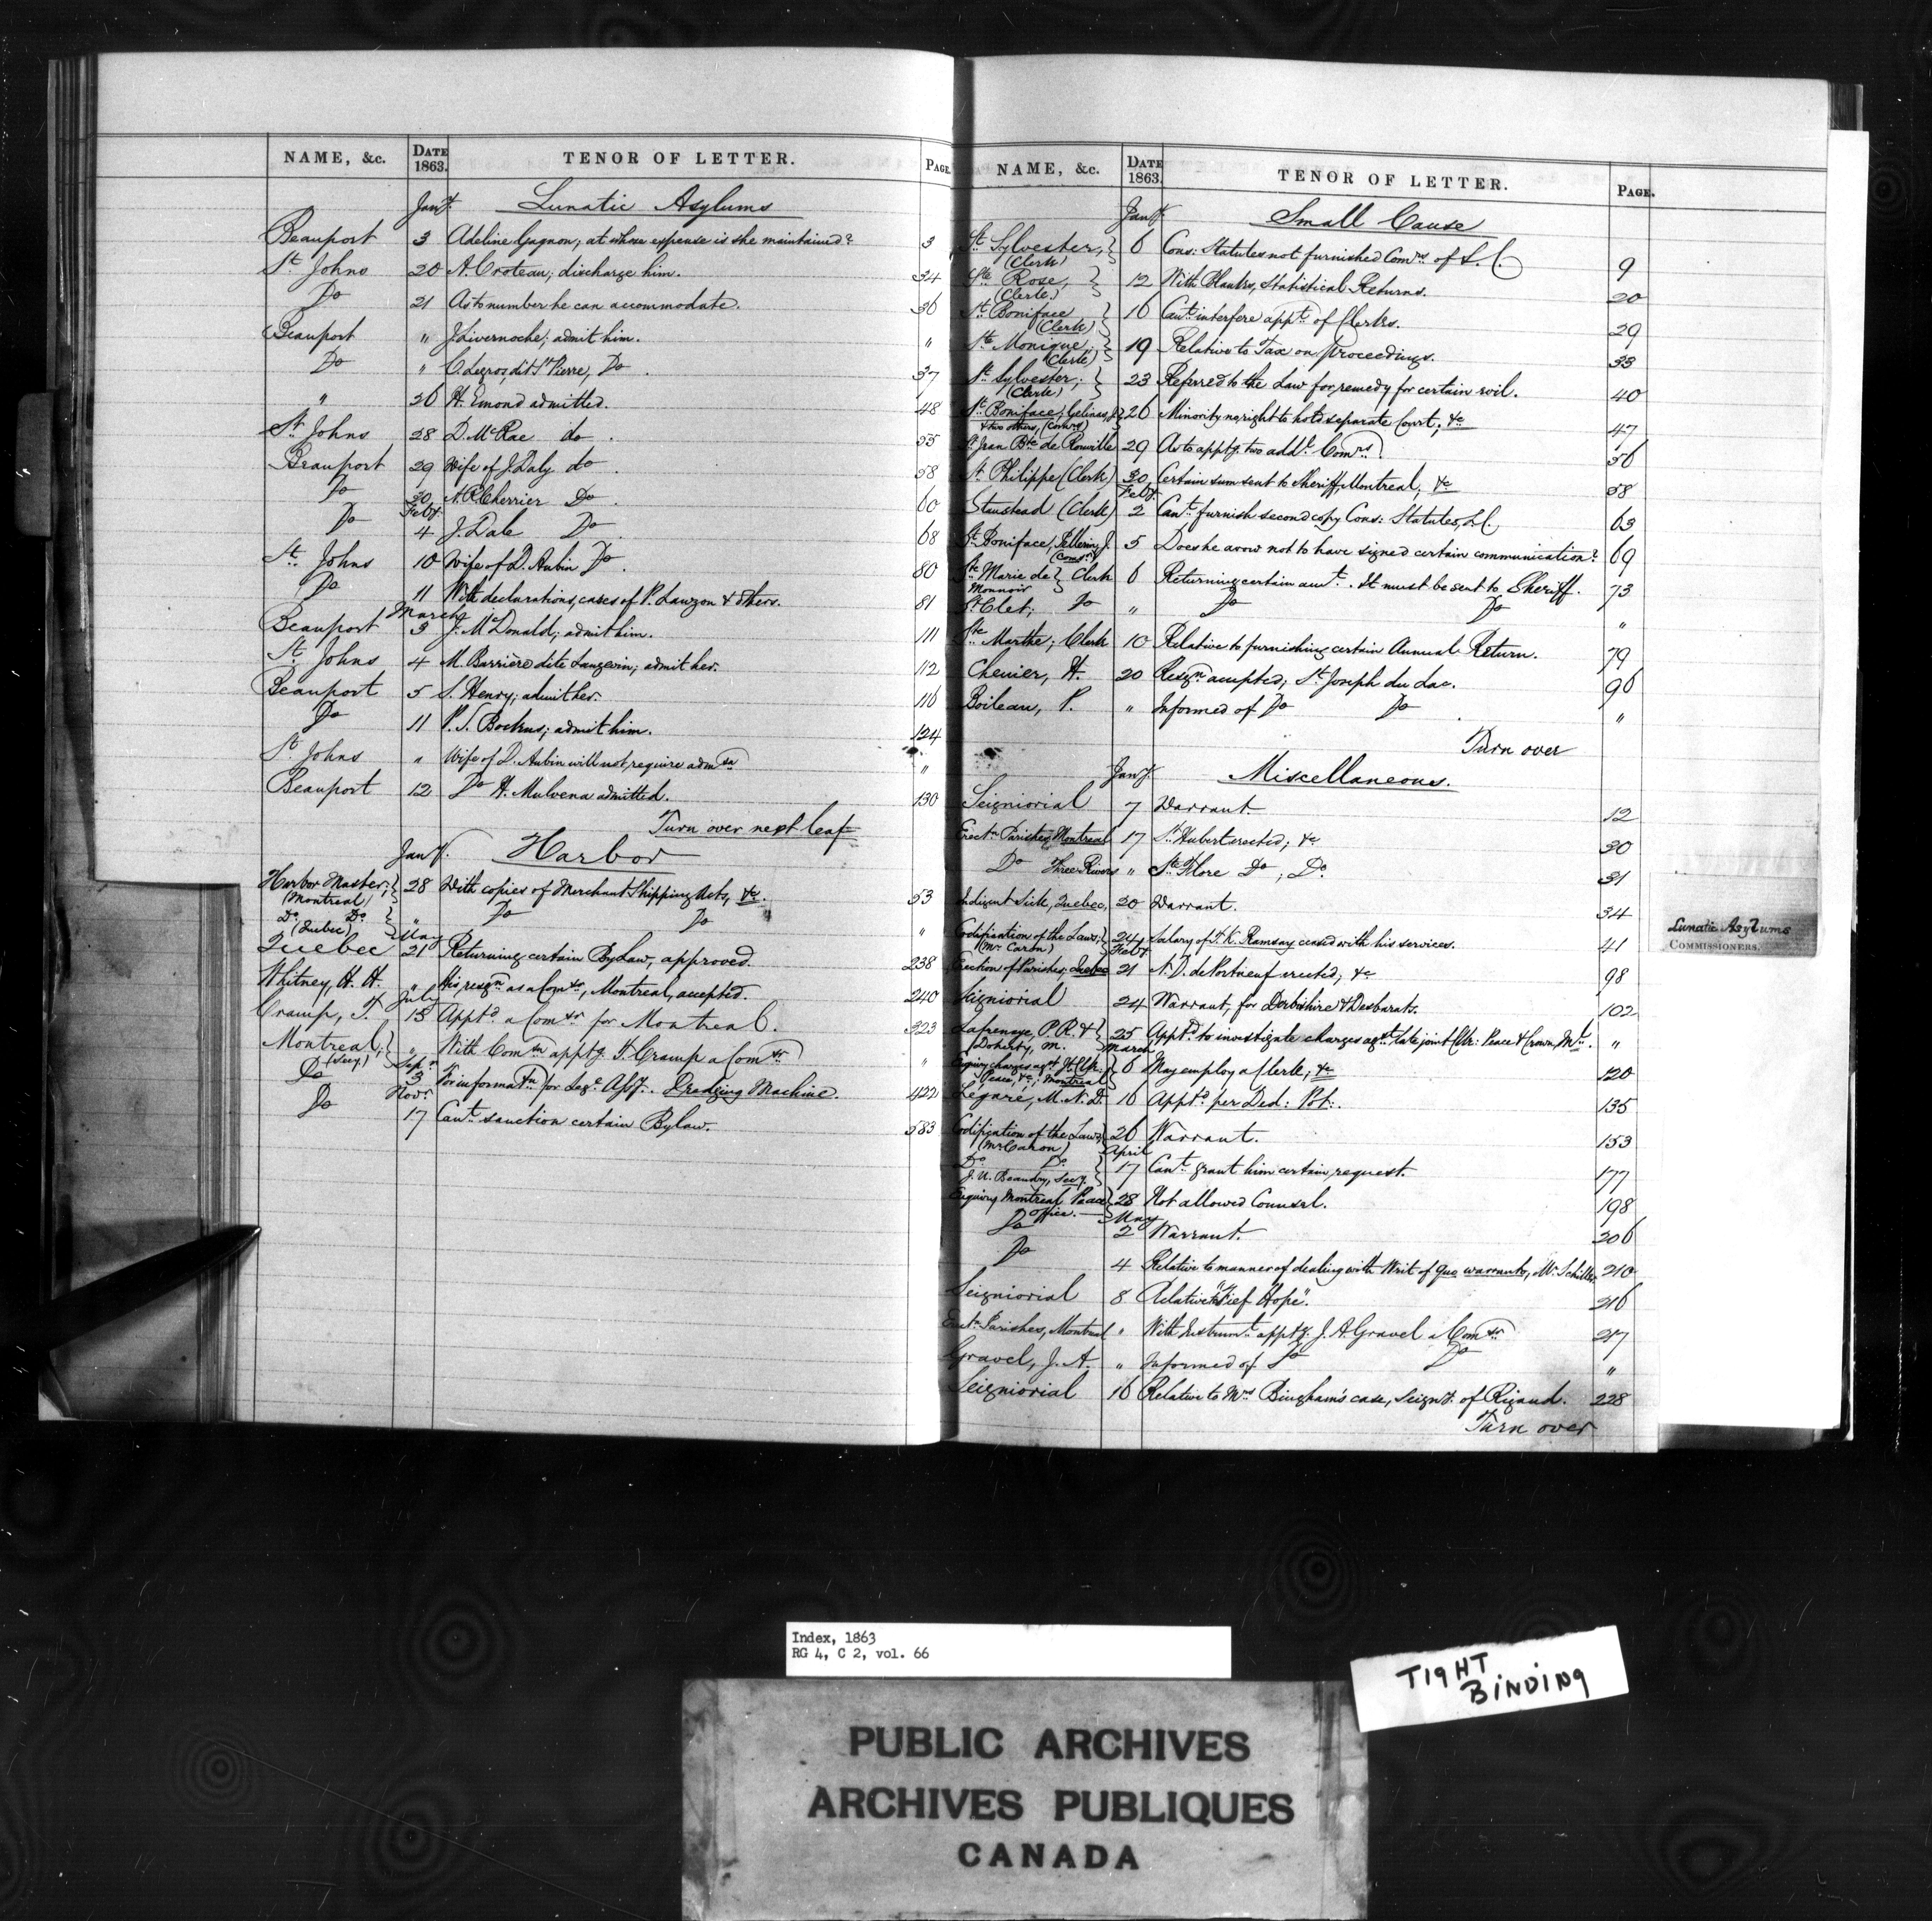 NAME, &c. DATE 1863. TENOR OF LETTER. PAGE.
Jany. Lunatic Asylums
Beauport 3 Adeline Gagnon; at whose expense is she maintained? 3
St. Johns 20 A. Croteau; discharge him. 34
Do 21 As to number he can accommodate. 36
Beauport " J. Livernoche; admit him. "
Do " C. Legros, dit St. Pierre, Do. 37
" 26 H. Emond admitted. 48
St. Johns 28 D. McRae do. 55
Beauport 29 Wife of J. Daly do. 58
Do 30 A. R. Cherrier Do. 60
Feby.
Do 4 J. Dale Do. 68
St. Johns 10 Wife of D. Aubin Do. 80
Do 11 With declarations, cases of P. Lawzon & others. 81
March
Beauport 3 J. McDonald; admit him. 111
St. Johns 4 M. Barrière dite Langevin; admit her. 112
Beauport 5 S. Henry; admit her. 116
Do 11 P. S. Bockus; admit him. 124
St. Johns " Wife of D. Aubin will not require admsn "
Beauport 12 Do H. Mulvena admitted. 130
Turn over next leaf
Jany. Harbor
Harbor Master; (Montreal) 28 With copies of Merchant Shipping Acts, &c. 53
Do. Do. (Quebec) " Do Do "
May
Quebec 21 Returning certain By Law, approved. 238
Whitney, H. H. " His resign. as a Comsr., Montreal, accepted. 240
July
Cramp, T. 15 Apptd. a Comsr. for Montreal. 323
Montreal; (Secy.) " With Comn. apptg. T. Cramp a Comsr. "
Sepr.
Do 3 For informatn. for Legve. Assy. Dredging Machine. 422
Novr.
Do 17 Cant. sanction certain Bylaw. 583
NAME, &c. DATE 1863. TENOR OF LETTER. PAGE.
Jany. Small Cause
St. Sylvester, (Clerk) 6 Cons: Statutes not furnished Comrs. of S.C. 9
Ste. Rose, (Clerk) 12 With Blanks, Statistical Returns. 20
St. Boniface (Clerk) 16 Cant. interfere appt. of Clerks. 29
Ste. Monique; (Clerk) 19 Relative to Tax on proceedings. 33
St. Sylvester; (Clerk) 23 Referred to the Law for remedy for certain evil. 40
St. Boniface; Gelinas, J. & two others, (Comrs) 26 Minority no right to hold separate Court; &c 47
St. Jean Bte. de Rouville 29 As to apptg. two addl. Comrs. 56
St. Philippe (Clerk) 30 Certain sum sent to Sheriff, Montreal, &c 58
Feby.
Stanstead (Clerk) 2 Cant. furnish second copy Cons: Statutes, L.C. 63
St. Boniface; Pellerin, J. (Comsr.) 5 Does he avow not to have signed certain communication? 69
Ste. Marie de Monnoir Clerk 6 Returning certain amt. It must be sent to Sheriff. 73
St. Clet; Do " Do Do "
Ste. Marthe; Clerk 10 Relative to furnishing certain Annual Return. 79
Chenier, H. 20 Resign. accepted; St. Joseph du Lac. 96
Boileau, P. " Informed of Do Do "
Turn over
Jany. Miscellaneous.
Seigniorial 7 Warrant. 12
Erectn. Parishes, Montreal 17 St. Hubert erected; &c 30
Do Three Rivers " Ste. Flore Do, Do. 31
Indigent Sick, Quebec, 20 Warrant. 34
Codification of the Laws; (Mr. Caron) 24 Salary of T. K. Ramsay ceased with his services. 41
Feby.
Erection of Parishes; Quebec 21 N. D. de Portneuf erected; &c 98
Seigniorial 24 Warrant, for Derbishire & Desbarats. 102
Lafrenaye, P. R. & Doherty, M. 25 Apptd. to investigate charges agst. late joint Clk: Peace & Crown, Ml. "
March
Enquiry charges agst. Jt. Clk. Peace, &c; Montreal 6 May employ a Clerk; &c 120
Legaré, M. N. D. 16 Apptd. per Ded: Pot:. 135
Codification of the Laws, (Mr Caron) 26 Warrant. 153
April
Do. Do. J. U. Beaudry, Secy. 17 Cant. grant him certain request. 177
Enquiry Montreal Peace Office. 28 Not allowed Counsel. 198
May
Do 2 Warrant. 206
Do 4 Relative to manner of dealing with Writ of quo warranto, Mr. Schiller 210
Seigniorial 8 Relative to "Fief Hope". 216
Erectn. Parishes, Montreal " With Instrumt. apptg. J. A. Gravel a Comsr. 217
Gravel, J. A. " Informed of Do Do "
Seigniorial 16 Relative to Mrs. Bingham's case, Seigny. of Rigaud. 228
Turn over
Lunatic Asylums
COMMISSIONERS.
Index, 1863
RG 4, C 2, vol. 66
TIGHT
BINDING
PUBLIC ARCHIVES
ARCHIVES PUBLIQUES
CANADA